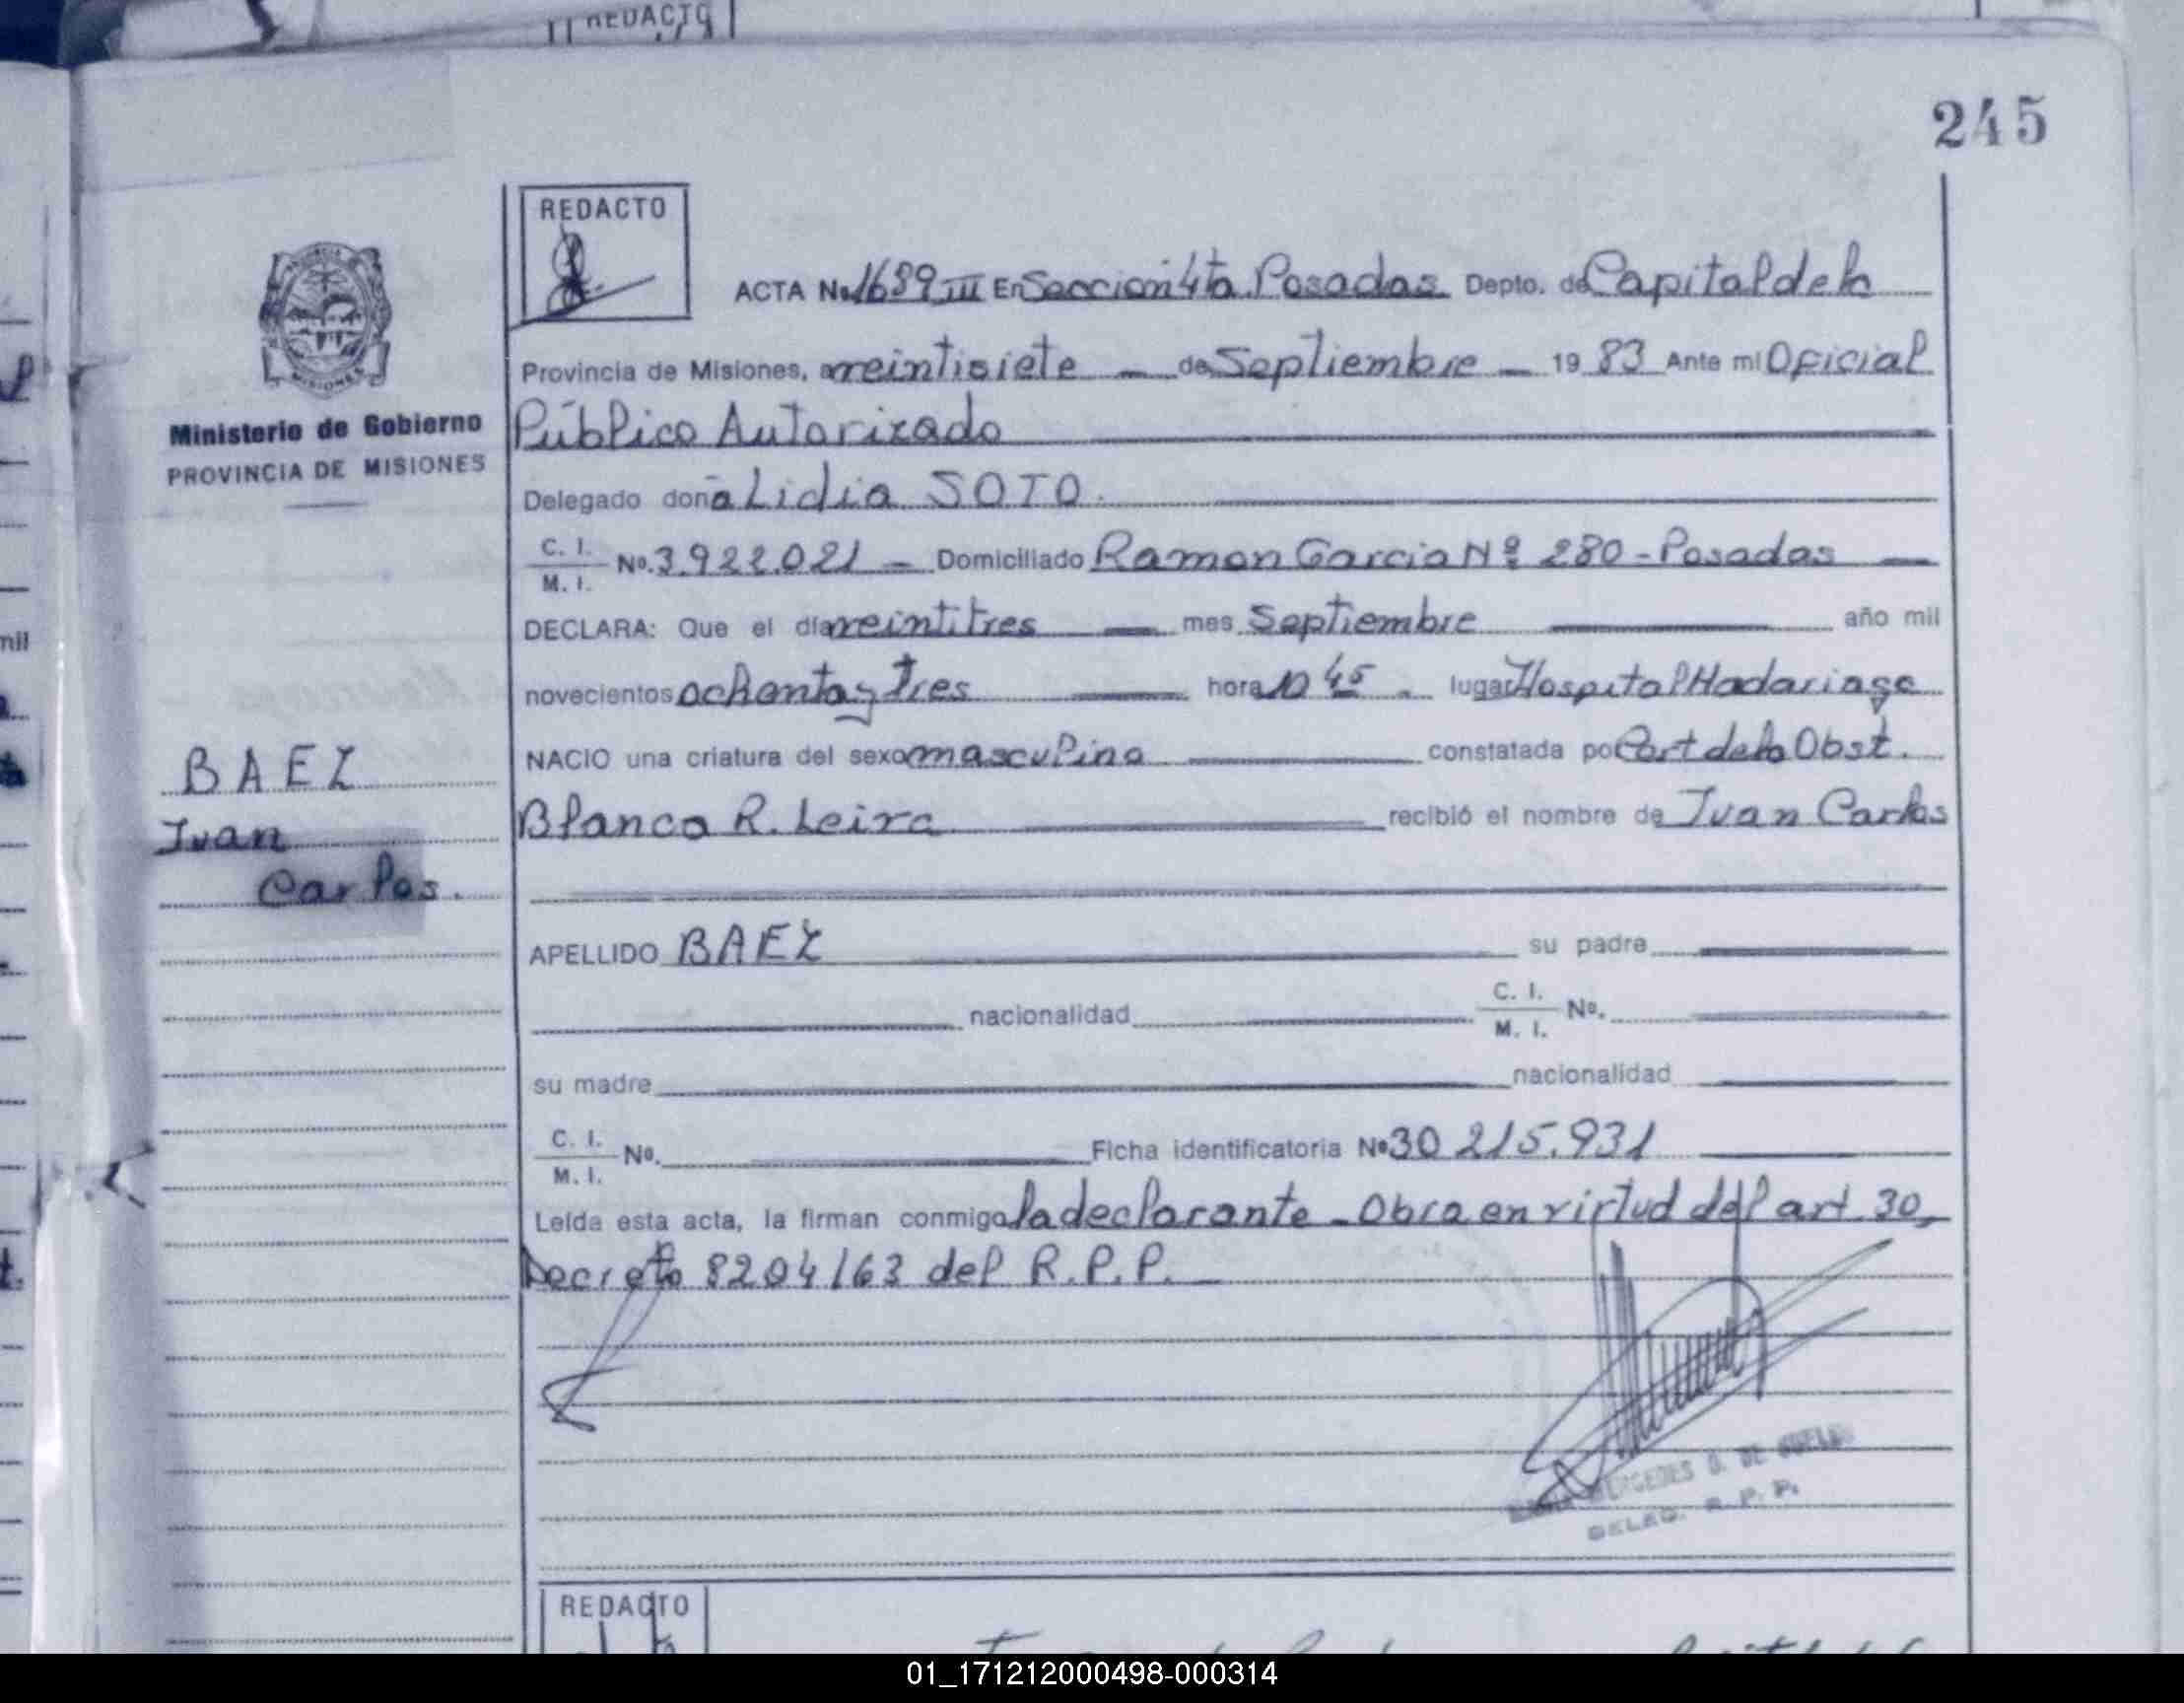 REDACTO
245
REDACTO
ACTA No. 1689 III En Sección 4ta Posadas Depto. de Capital de la
Provincia de Misiones, a veintisiete — de Septiembre — 19 83 Ante mí Oficial
Ministerio de Gobierno
PROVINCIA DE MISIONES
Público Autorizado
Delegado doña Lidia SOTO.
C. I.
M. I.
No. 3.922.021 — Domiciliado Ramon Garcia Nº 280 - Posadas —
DECLARA: Que el día veintitres — mes Septiembre — año mil
novecientos ochenta y tres — hora 10 45 - lugar Hospital Madariaga
NACIO una criatura del sexo masculino — constatada por Cert de la Obst.
BAEZ
Ivan
Carlos.
Blanca R. Leiva — recibió el nombre de Ivan Carlos
APELLIDO BAEZ — su padre
nacionalidad C. I.
M. I. No.
su madre nacionalidad
C. I.
M. I. No. Ficha identificatoria No 30 215.931
Leída esta acta, la firman conmigo la declarante - Obra en virtud del art. 30,
Decreto 8204/63 del R.P.P. —
MERCEDES
DELEG. R. P. P.
REDACTO
01_171212000498-000314